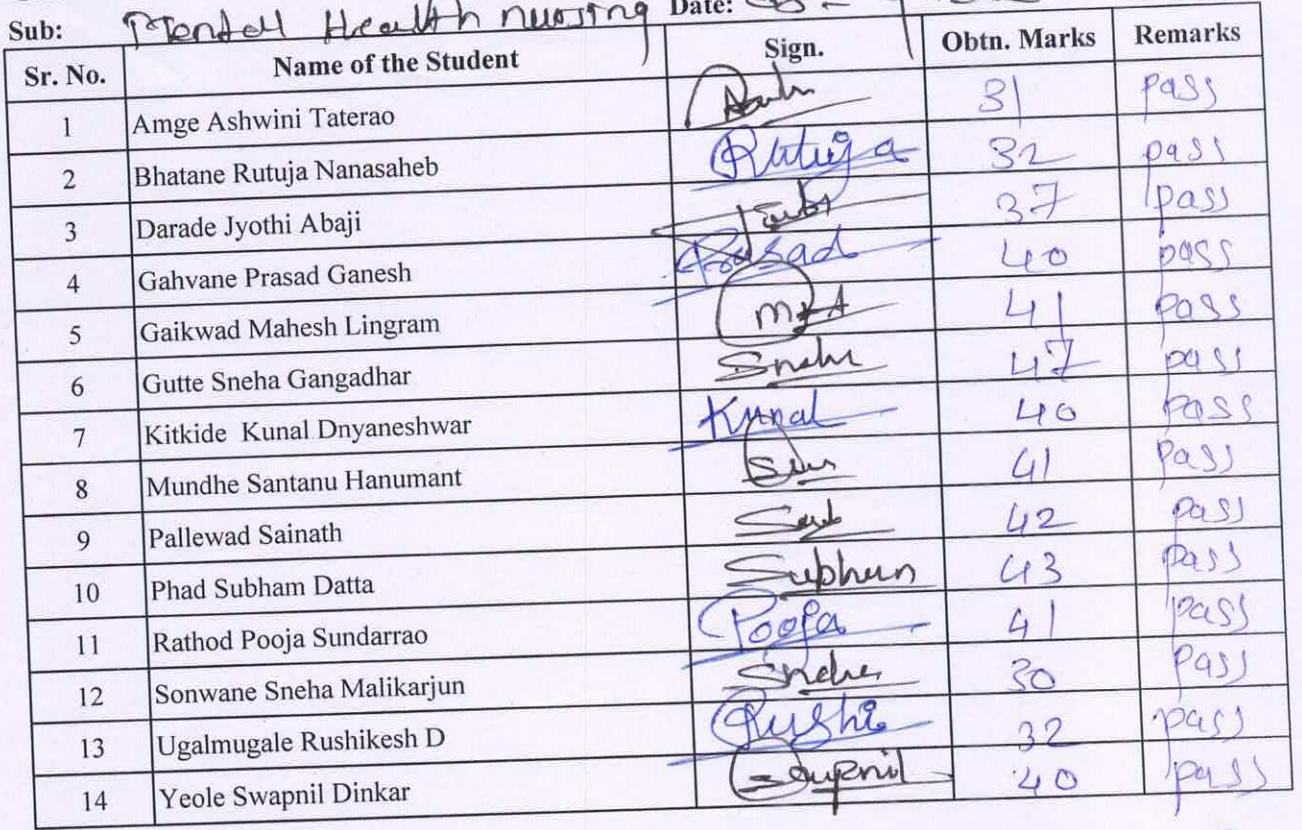 Sub: Mental Health nursing Date:
Sr. No. Name of the Student Sign. Obtn. Marks Remarks
1 Amge Ashwini Taterao 31 pass
2 Bhatane Rutuja Nanasaheb Rutuja 32 pass
3 Darade Jyothi Abaji 37 pass
4 Gahvane Prasad Ganesh Prasad 40 pass
5 Gaikwad Mahesh Lingram 41 pass
6 Gutte Sneha Gangadhar Sneha 47 pass
7 Kitkide Kunal Dnyaneshwar Kunal 40 pass
8 Mundhe Santanu Hanumant 41 pass
9 Pallewad Sainath 42 pass
10 Phad Subham Datta 43 pass
11 Rathod Pooja Sundarrao Pooja 41 pass
12 Sonwane Sneha Malikarjun Sneha 30 pass
13 Ugalmugale Rushikesh D Rushi 32 pass
14 Yeole Swapnil Dinkar Swapnil 40 pass